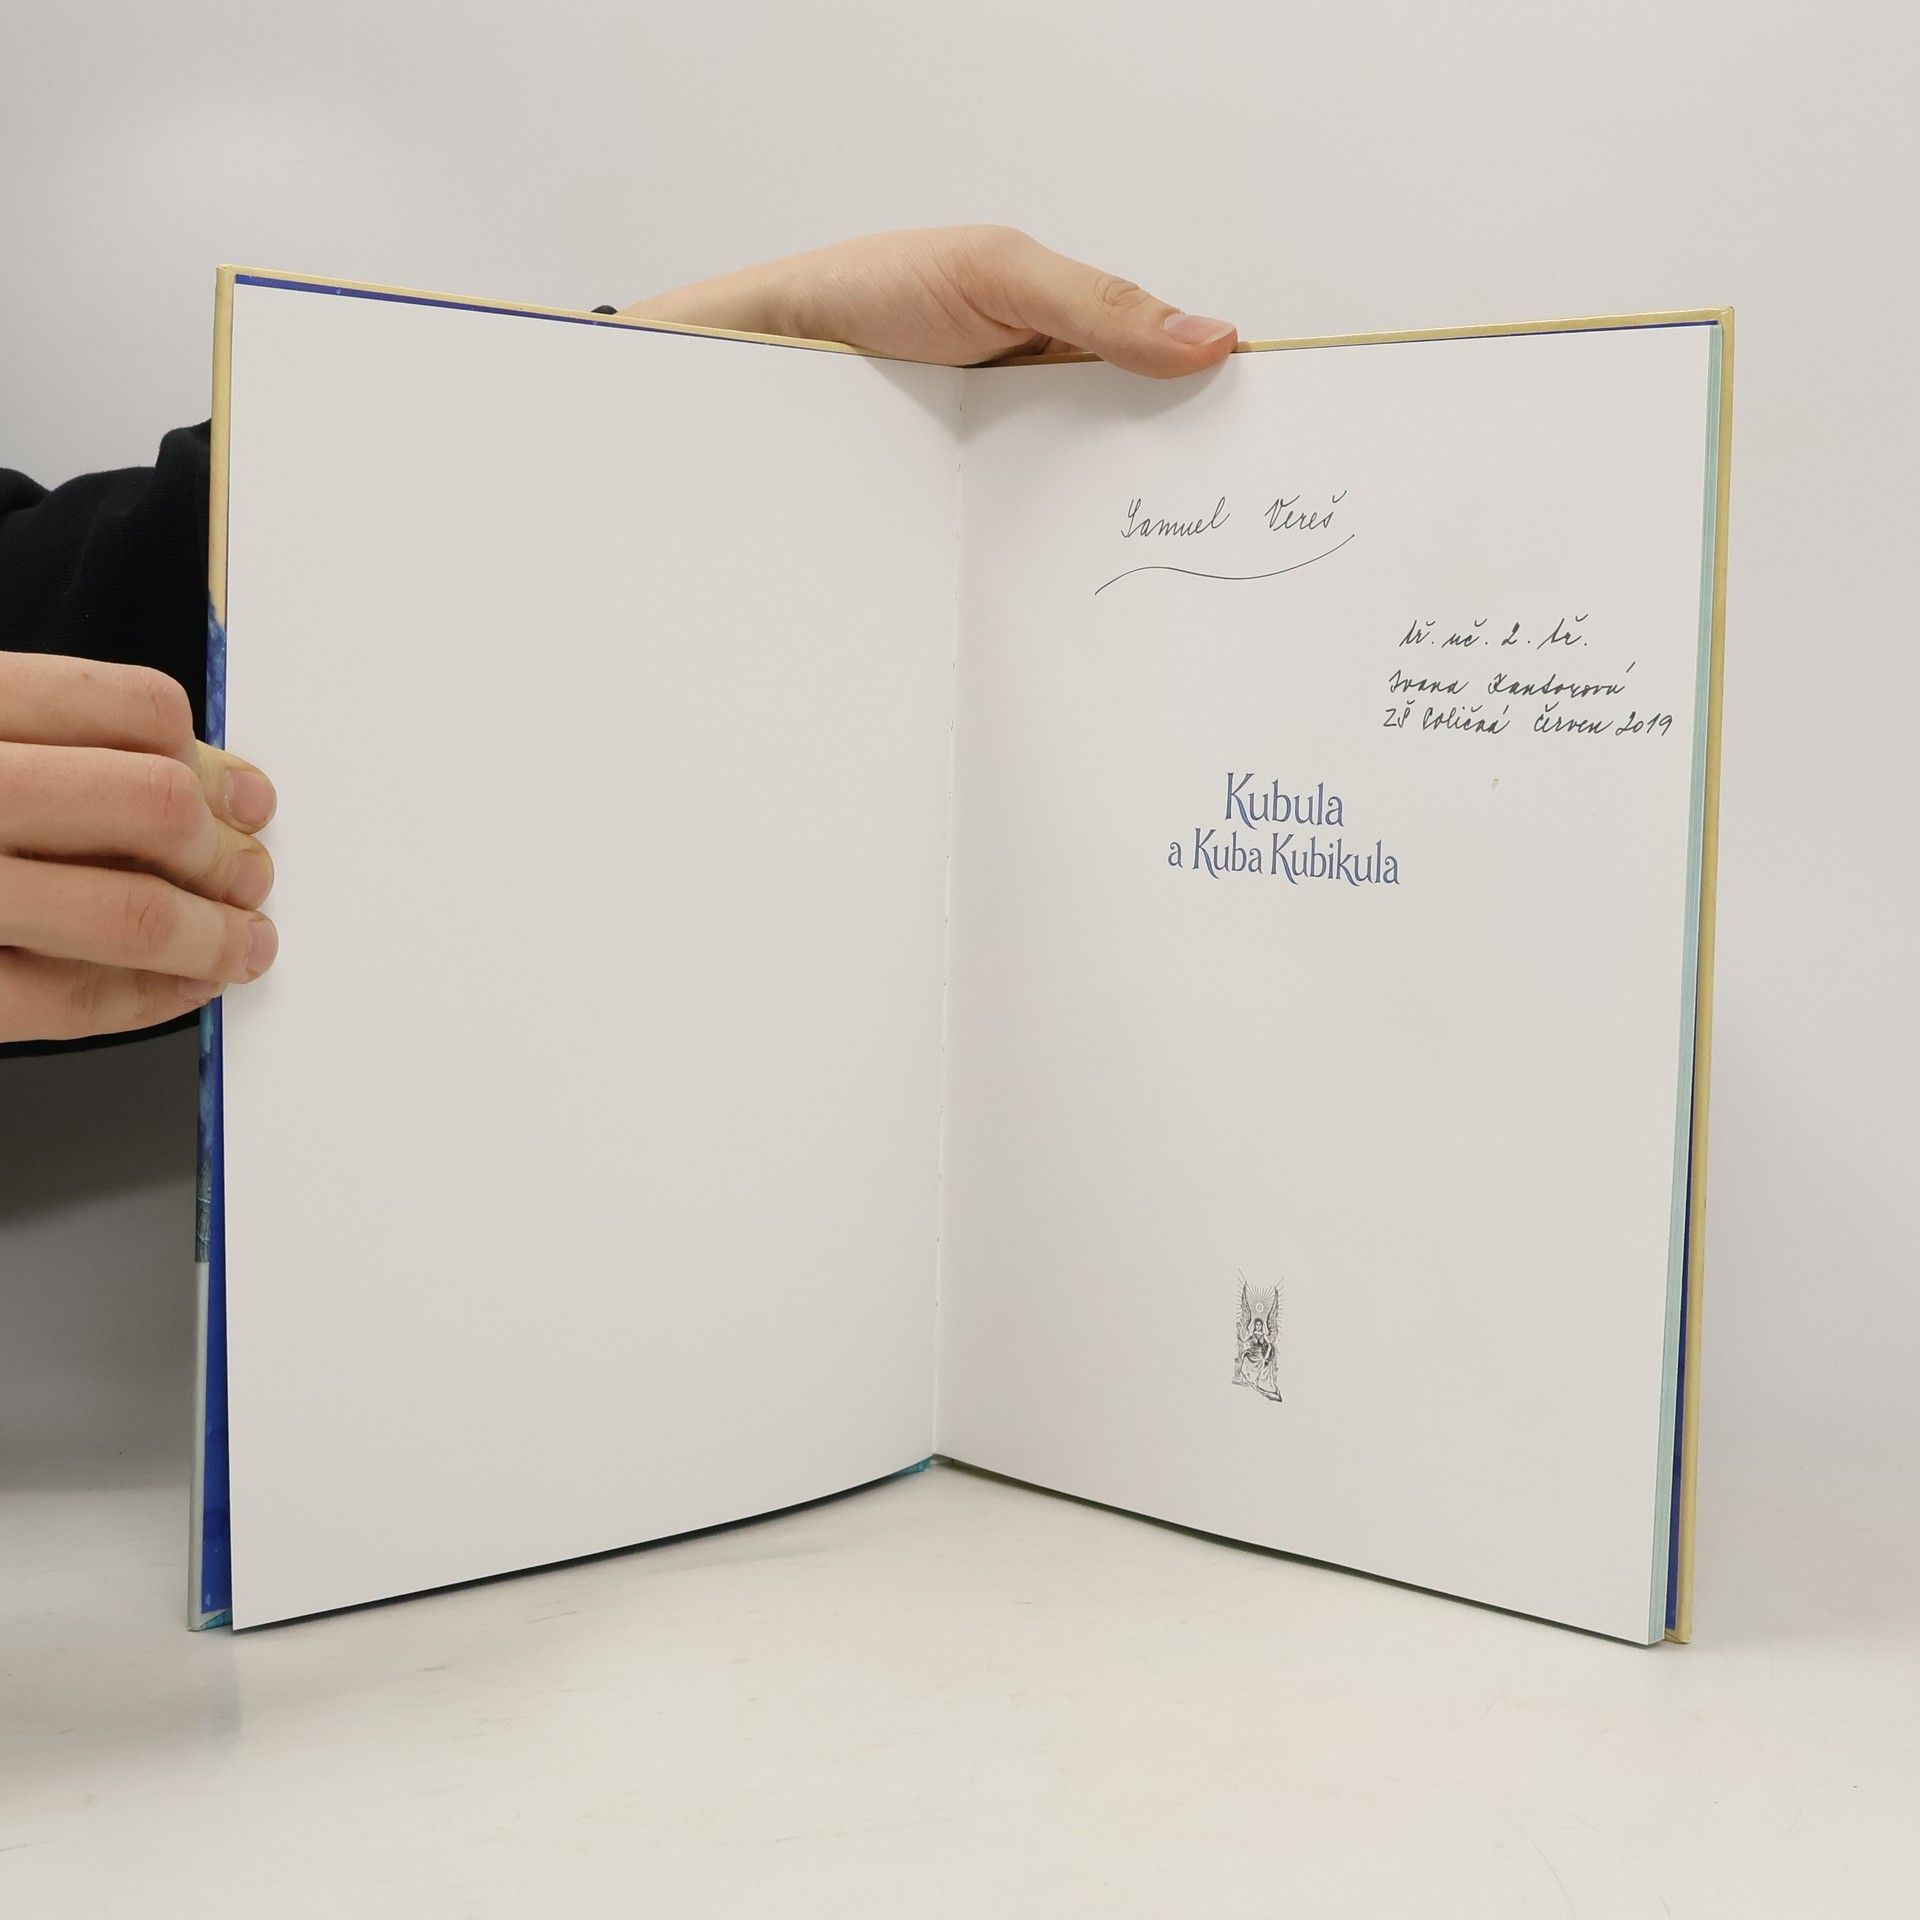 Samuel Vereš
tř. uč. 2. tř.
Ivana Kantorová
ZŠ Poličná červen 2019
Kubula
a Kuba Kubikula